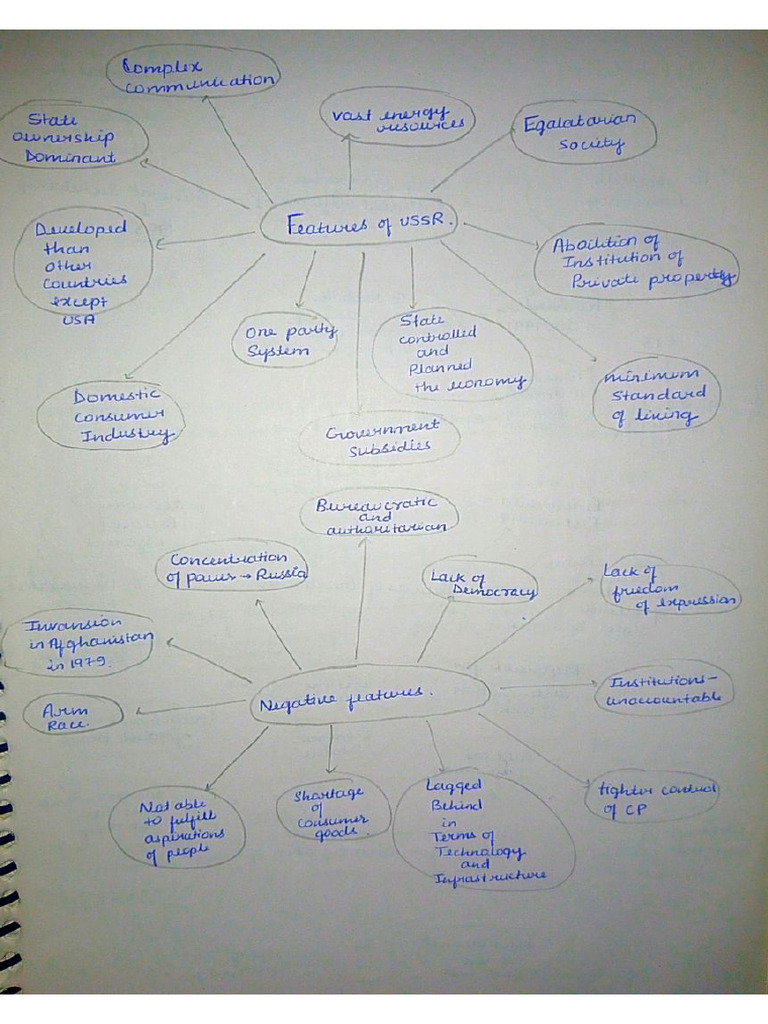 Complex
communication
State
ownership
Dominant
vast energy
resources
Egalatarian
society
Features of USSR.
Developed
than
other
countries
except
USA
Aboilition of
Institution of
Private property
One party
System
State
controlled
and
Planned
the economy
minimum
Standard
of living
Domestic
Consumer
Industry
Government
Subsidies
Bureaucratic
and
authoritarian
Concentration
of power → Russia
Lack of
Democracy
Lack of
freedom
of expression
Invansion
in Afghanistan
in 1979.
Negative features.
Institutions-
unaccountable
Arm
Race.
Not able
to fulfill
aspirations
of people
Shortage
of
Consumer
goods.
Lagged
Behind
in
Terms of
Technology
and
Infrastructure
tighter control
of CP